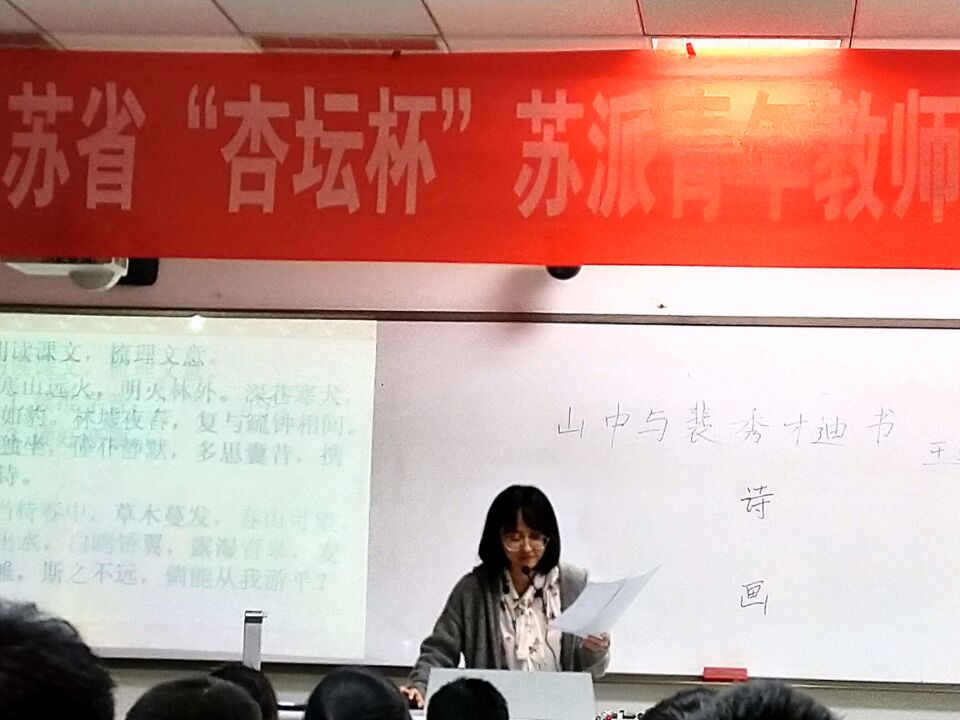 苏省“杏坛杯”苏派青年教师
读课文，梳理文意。
寒山远火，明灭林外。深巷寒犬，
如豹，村墟夜舂，复与疏钟相间。
独坐，僮仆静默，多思曩昔，携
诗。
当待春中，草木蔓发，春山可
出水，白鸥矫翼，露湿青皋，麦
雊，斯之不远，倘能从我游乎？
山中与裴秀才迪书
王
诗
画